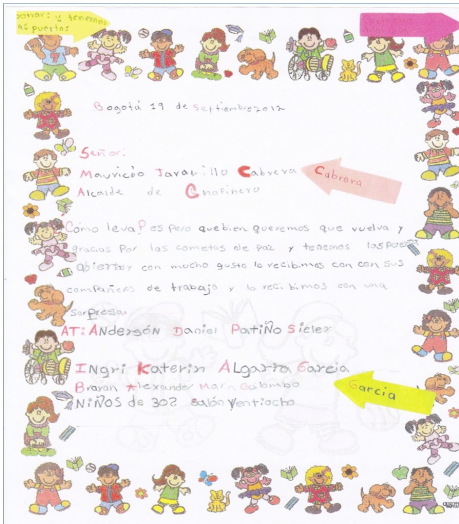 y tenemos
puertas
Bogotá 19 de Septiembre 2012
Señor:
Mauricio Jaramillo Cabrera
Cabrera
Alcalde de Chapinero
Como leva? espero quebien queremos que vuelva y
gracias Por las cometas de paz y tenemos las puertas
abiertas con mucho gusto lo recibimos con con sus
compañeros de trabajo y lo recibimos con una
sorpresa.
AT: Anderson Daniel Patiño Sicler
Ingri Katerin Algarra Garcia
Garcia
Brayan Alexander Marn
NIÑOS de 302 Salón Ventiocho